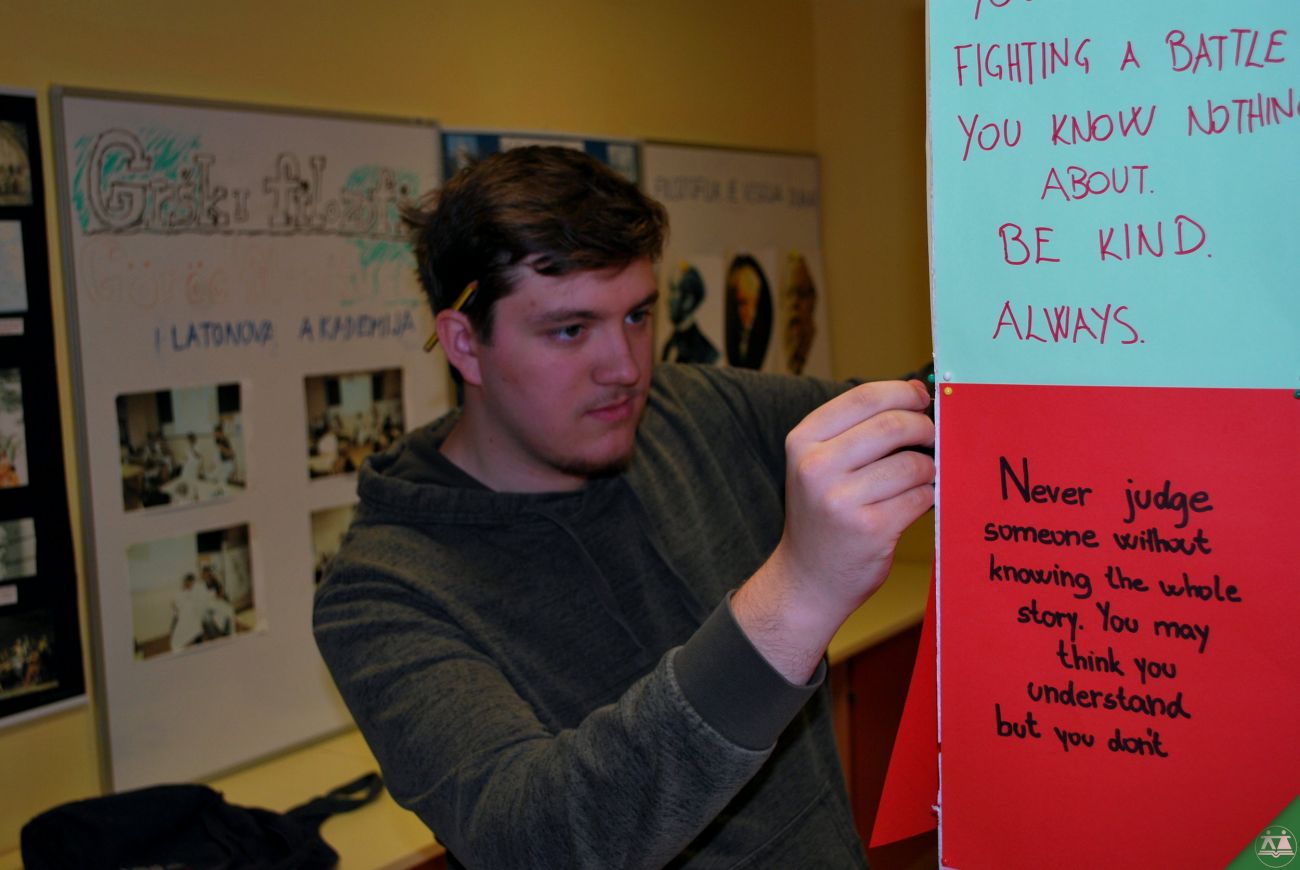 Grški filozofi
PLATONOVA AKADEMIJA
FILOZOFIJA JE
FIGHTING A BATTLE
YOU KNOW NOTHING
ABOUT.
BE KIND.
ALWAYS.
Never judge
someone without
knowing the whole
story. You may
think you
understand
but you don't